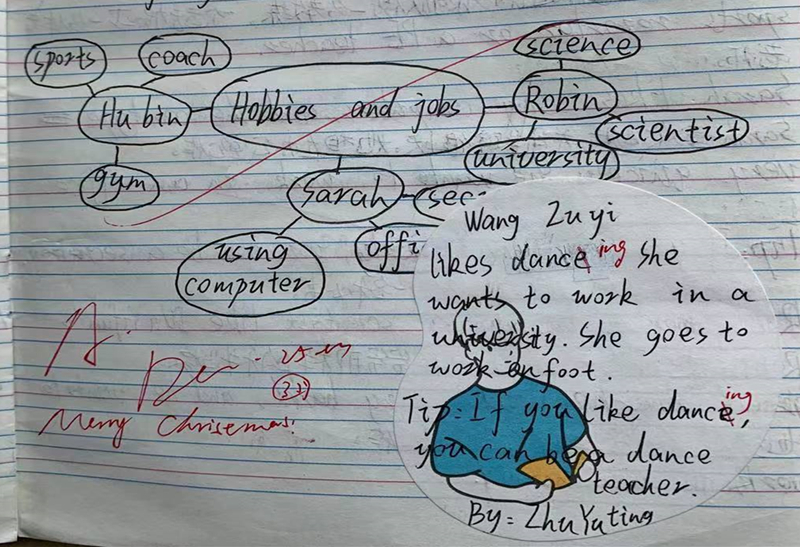 science
sports
coach
Hu bin
Hobbies and jobs
Robin
scientist
university
gym
Sarah
sec
offi
using
computer
Wang Zuyi
likes dance ing She
wants to work in a
university. She goes to
work on foot.
Tip: If you like dance ing,
you can be a dance
teacher.
By: Zhu Yuting
A.
Merry Chrisemas!